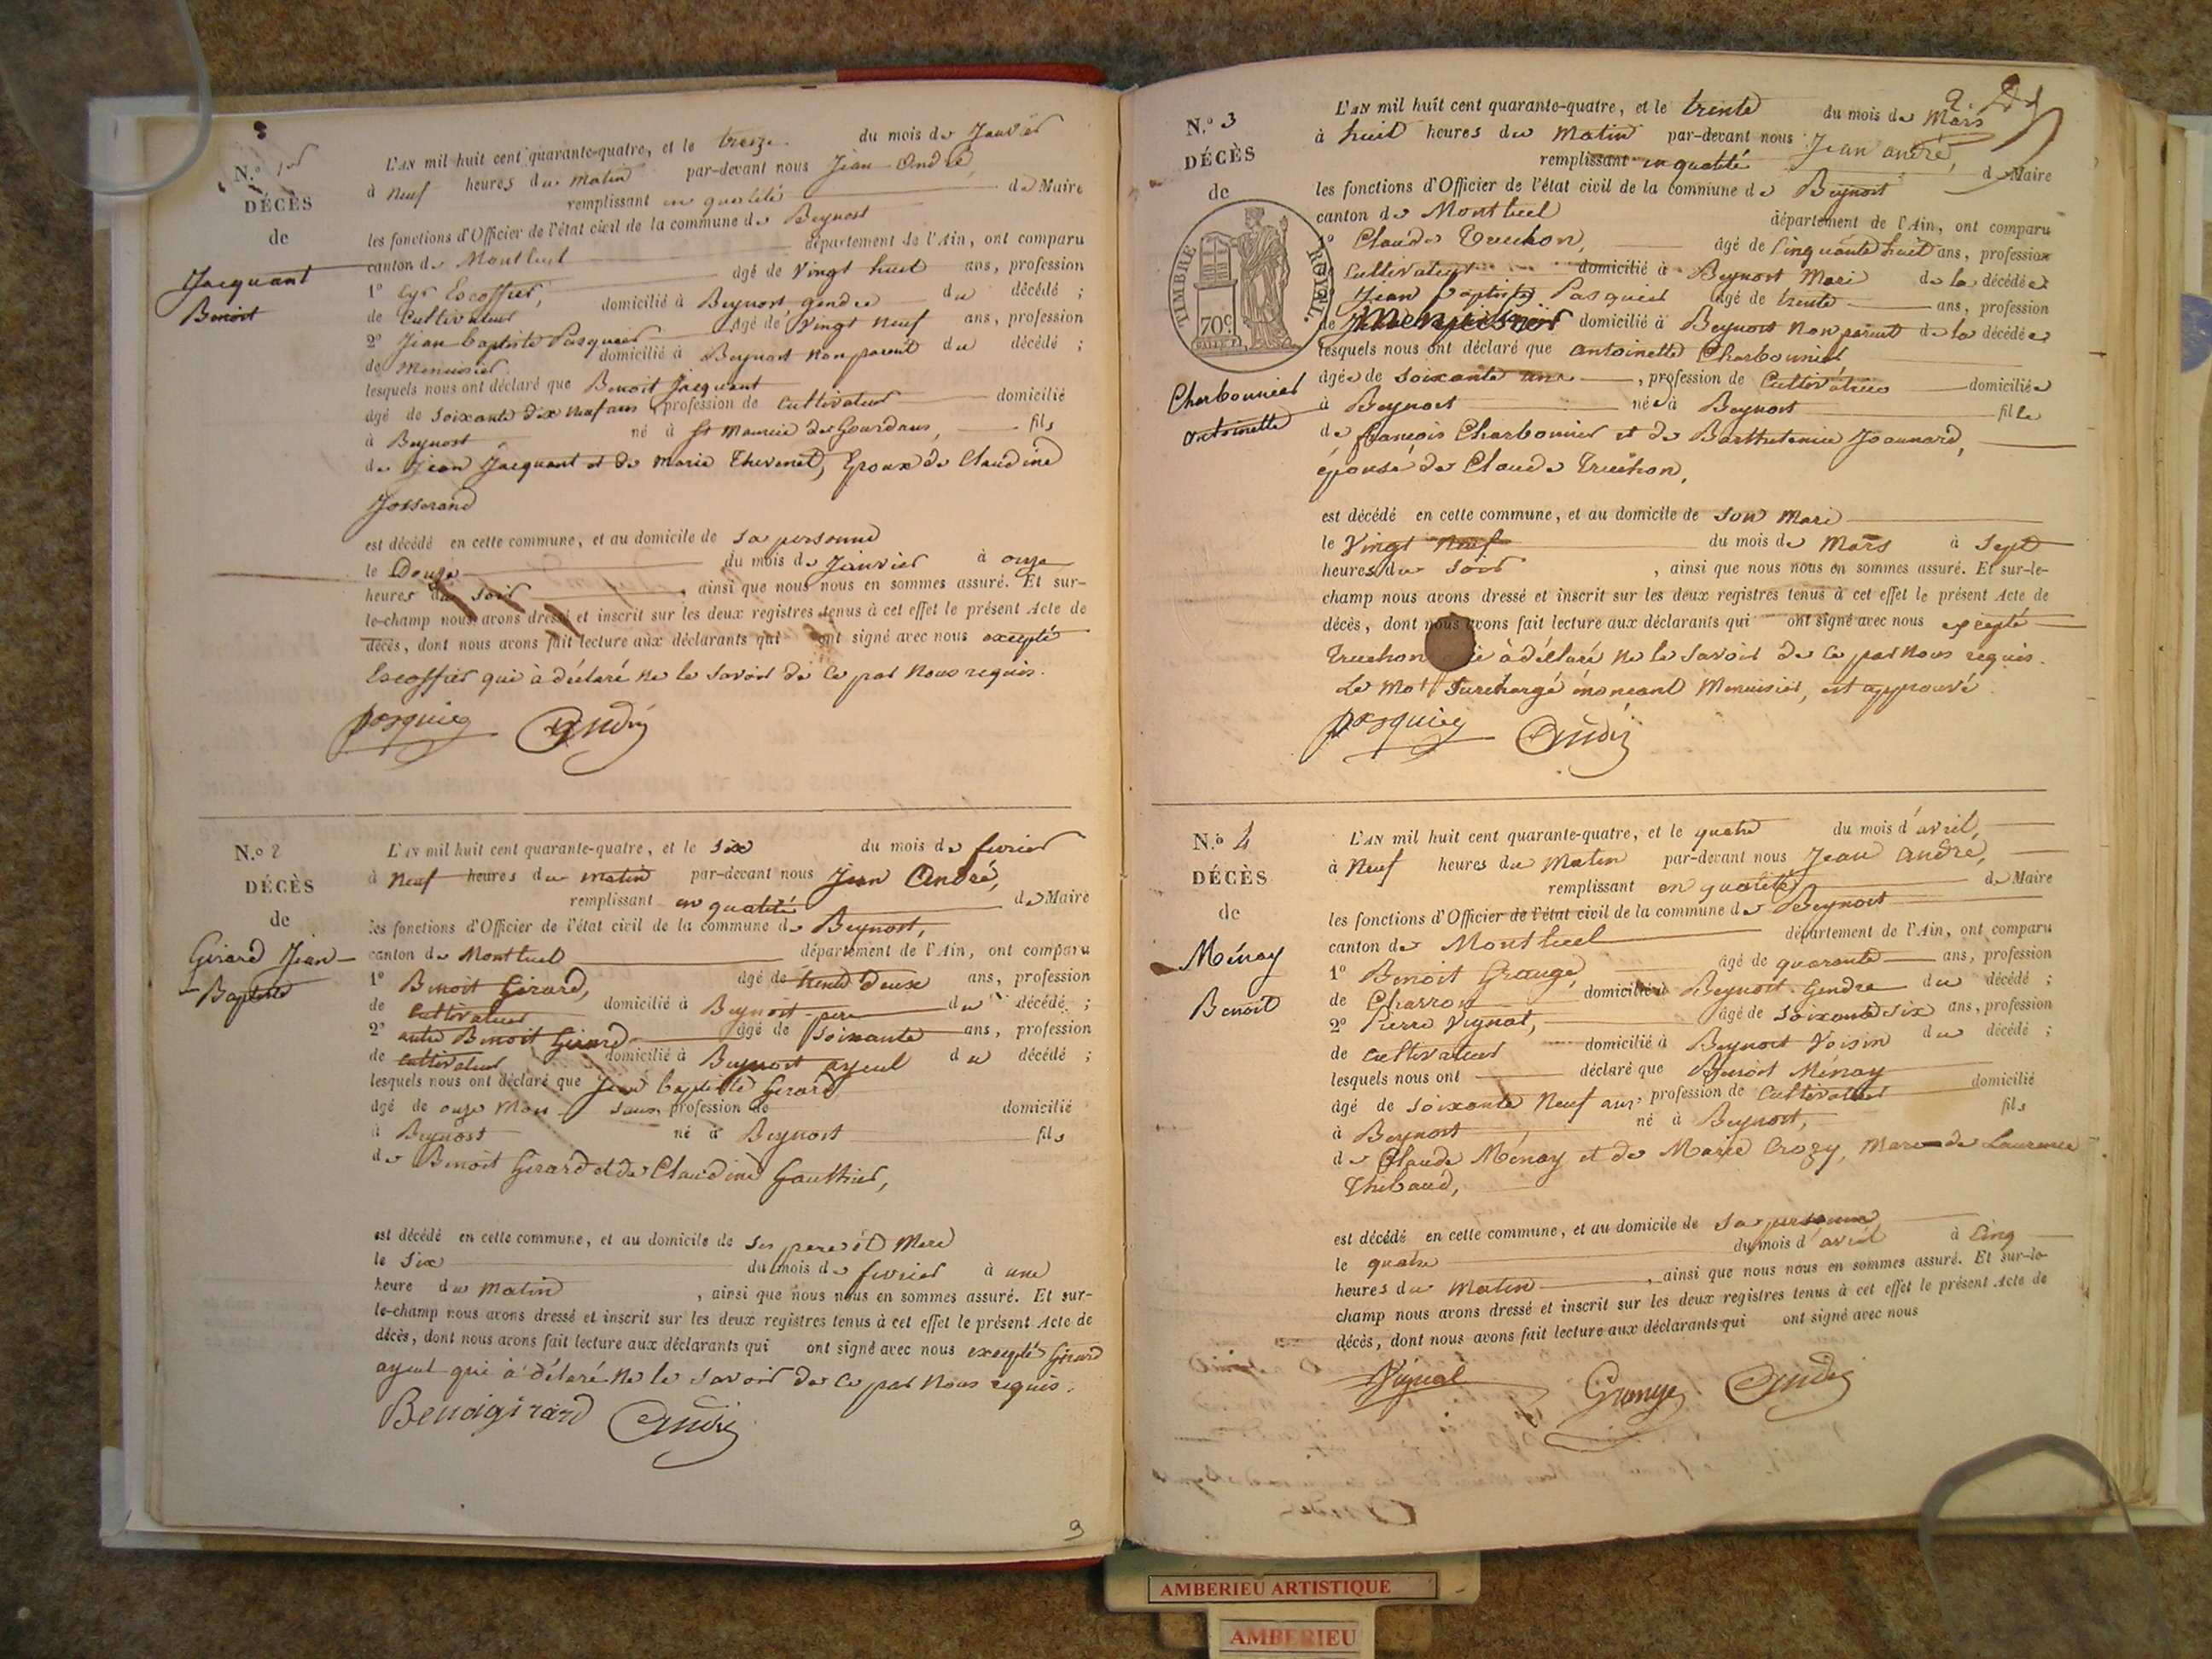 N.º 1er
DÉCÈS
de
Jacquant
Benoit
L'AN mil huit cent quarante-quatre, et le treize du mois de Janvier
à Neuf heures du matin par-devant nous Jean André,
remplissant en qualité de Maire
les fonctions d'Officier de l'état civil de la commune de Beynost
canton de Montluel département de l'Ain, ont comparu
1º Cyr Escoffier, âgé de vingt huit ans, profession
de Cultivateur domicilié à Beynost gendre du décédé ;
2º Jean Baptiste Pasquier âgé de vingt neuf ans, profession
de Menuisier domicilié à Beynost non parent du décédé ;
lesquels nous ont déclaré que Benoit Jacquant
âgé de soixante dix neuf ans, profession de cultivateur domicilié
à Beynost né à St Maurice de Gourdans, fils
de Jean Jacquant et de Marie Thevenet, Epoux de Claudine
Josserand
est décédé en cette commune, et au domicile de sa personne
le Douze du mois de Janvier à onze
heures du soir, ainsi que nous nous en sommes assuré. Et sur-
le-champ nous avons dressé et inscrit sur les deux registres tenus à cet effet le présent Acte de
décès, dont nous avons fait lecture aux déclarants qui ont signé avec nous excepté
Escoffier qui à déclaré ne le savoir de ce par nous requis.
pasquier André
N.º 2
DÉCÈS
de
Girard Jean-
Baptiste
L'AN mil huit cent quarante-quatre, et le six du mois de fevrier
à Neuf heures du matin par-devant nous Jean André,
remplissant en qualité de Maire
les fonctions d'Officier de l'état civil de la commune de Beynost,
canton de Montluel département de l'Ain, ont comparu
1º Benoit Girard, âgé de trente deux ans, profession
de cultivateur domicilié à Beynost pere du décédé ;
2º autre Benoit Girard âgé de soixante ans, profession
de cultivateur domicilié à Beynost ayeul du décédé ;
lesquels nous ont déclaré que Jean baptiste Girard
âgé de onze mois sans profession de domicilié
à Beynost né à Beynost fils
de Benoit Girard et de Claudine Gauthier,
est décédé en cette commune, et au domicile de ses pere et Mere
le six du mois de fevrier à une
heure du matin, ainsi que nous nous en sommes assuré. Et sur-
le-champ nous avons dressé et inscrit sur les deux registres tenus à cet effet le présent Acte de
décès, dont nous avons fait lecture aux déclarants qui ont signé avec nous excepté Girard
ayeul qui à déclaré ne le savoir de ce par nous requis.
Benoigirard André
9
2
N.º 3
DÉCÈS
de
TIMBRE ROYAL.
70c
Charbonnier
Antoinette
L'AN mil huit cent quarante-quatre, et le trente du mois de Mars
à huit heures du Matin par-devant nous Jean André,
remplissant en qualité de Maire
les fonctions d'Officier de l'état civil de la commune de Beynost
canton de Montluel département de l'Ain, ont comparu
1º Claude Truchon, âgé de cinquante huit ans, profession
Cultivateur domicilié à Beynost Mari de la décédée
Jean baptiste Pasquier âgé de trente ans, profession
de Menuisier domicilié à Beynost non parent de la décédée
lesquels nous ont déclaré que antoinette Charbonnier
âgée de soixante une, profession de Cultivatrice domiciliée
à Beynost née à Beynost fille
de françois Charbonnier et de Barthelemie Joannard,
épouse de Claude Truchon,
est décédé en cette commune, et au domicile de son Mari
le Vingt Neuf du mois de Mars à sept
heures du soir, ainsi que nous nous en sommes assuré. Et sur-le-
champ nous avons dressé et inscrit sur les deux registres tenus à cet effet le présent Acte de
décès, dont nous avons fait lecture aux déclarants qui ont signé avec nous excepté
Truchon à déclaré ne le savoir de ce par nous requis.
Le Mot Surchargé énonçant Menuisier, est approuvé.
pasquier André
N.º 4
DÉCÈS
de
Ménoy
Benoit
L'AN mil huit cent quarante-quatre, et le quatre du mois d'avril,
à Neuf heures du Matin par-devant nous Jean André,
remplissant en qualité de Maire
les fonctions d'Officier de l'état civil de la commune de Beynost
canton de Montluel département de l'Ain, ont comparu
1º Benoit Grange, âgé de quarante ans, profession
de Charron domicilié à Beynost Gendre du décédé ;
2º Pierre Vignat, âgé de soixante six ans, profession
de cultivateur domicilié à Beynost Voisin du décédé ;
lesquels nous ont déclaré que Benoit Ménoy
âgé de soixante Neuf ans, profession de Cultivateur domicilié
à Beynost né à Beynost, fils
de Claude Ménoy et de Marie Crozy, Mari de Laurence
Thibaud,
est décédé en cette commune, et au domicile de sa personne
le quatre du mois d'avril à cinq
heures du Matin, ainsi que nous nous en sommes assuré. Et sur-le-
champ nous avons dressé et inscrit sur les deux registres tenus à cet effet le présent Acte de
décès, dont nous avons fait lecture aux déclarants qui ont signé avec nous
Vignat Grange André
AMBERIEU ARTISTIQUE
AMBERIEU